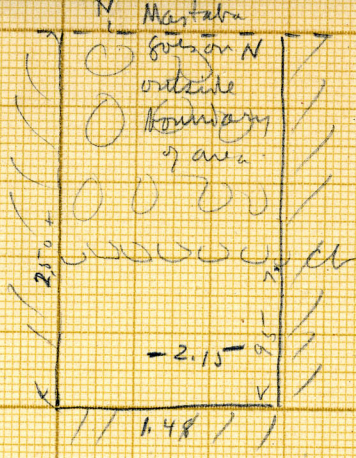 N. Mastaba
goes on N
outside
boundary
of area
2.50 +
-2.15
95
1.48